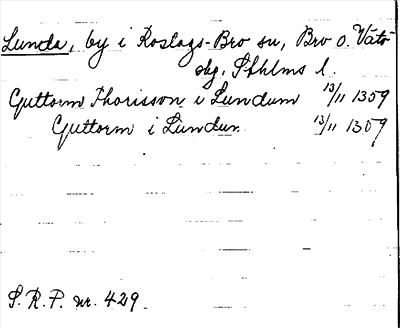 Lunda, by i Roslags-Bro sn, Bro o. Vätö
skg. Sthlms l.
Guttorm Thorisson i Lundum 13/11 1359
Guttorm i Lundum 13/11 1359
S. R. P. nr. 429.